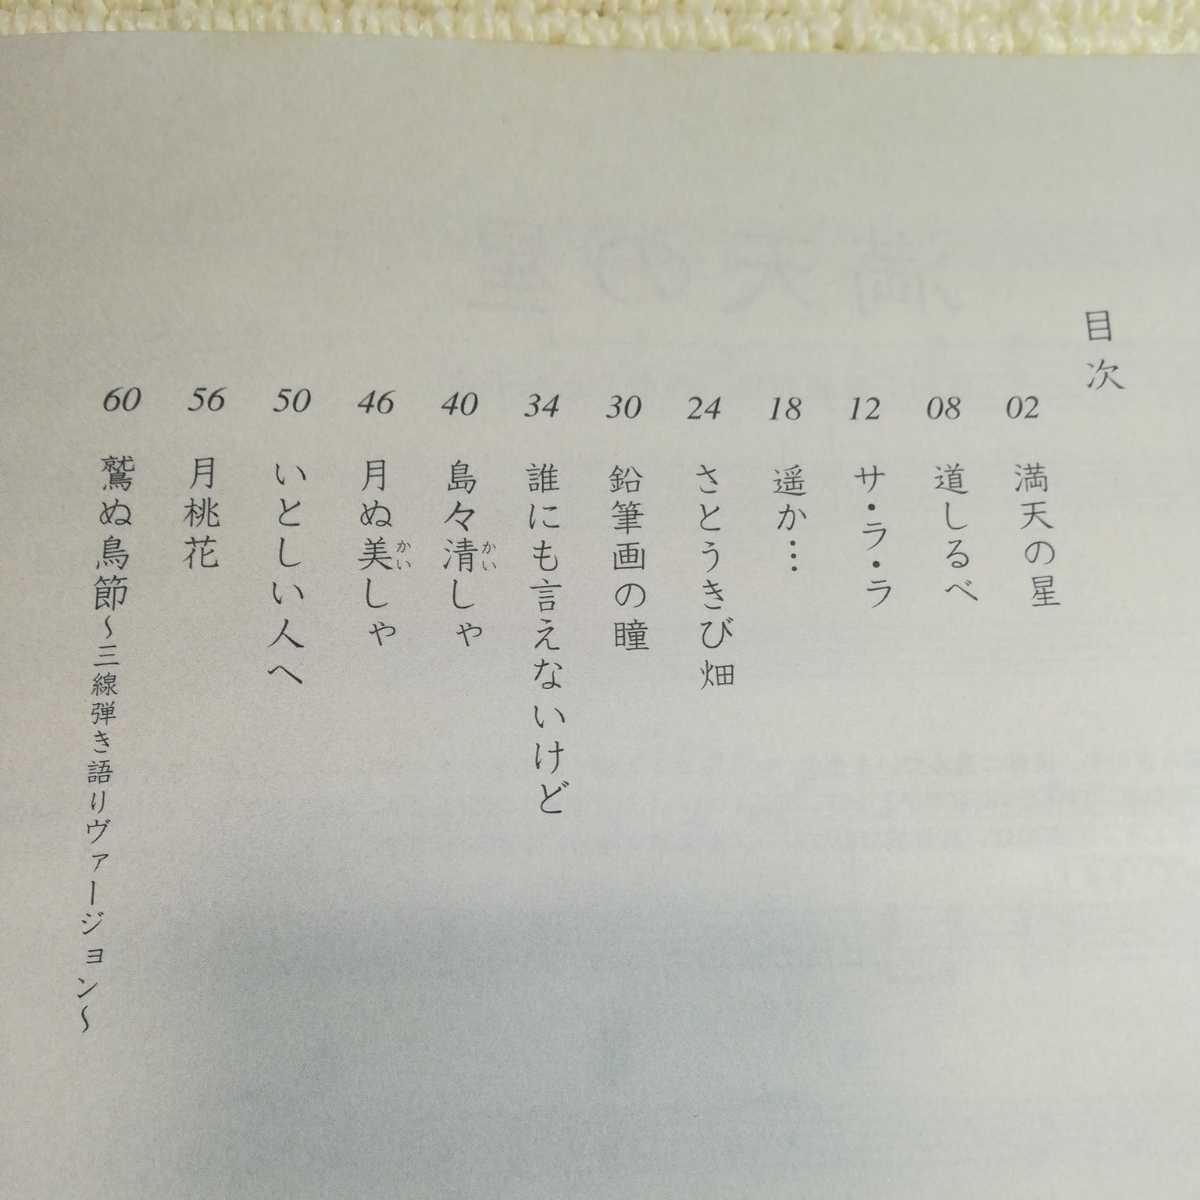 目次
02 満天の星
08 道しるべ
12 サ・ラ・ラ
18 遥か…
24 さとうきび畑
30 鉛筆画の瞳
34 誰にも言えないけど
40 島々清しゃ
かい
46 月ぬ美しゃ
かい
50 いとしい人へ
56 月桃花
60 鷲ぬ鳥節〜三線弾き語りヴァージョン〜
満天の星